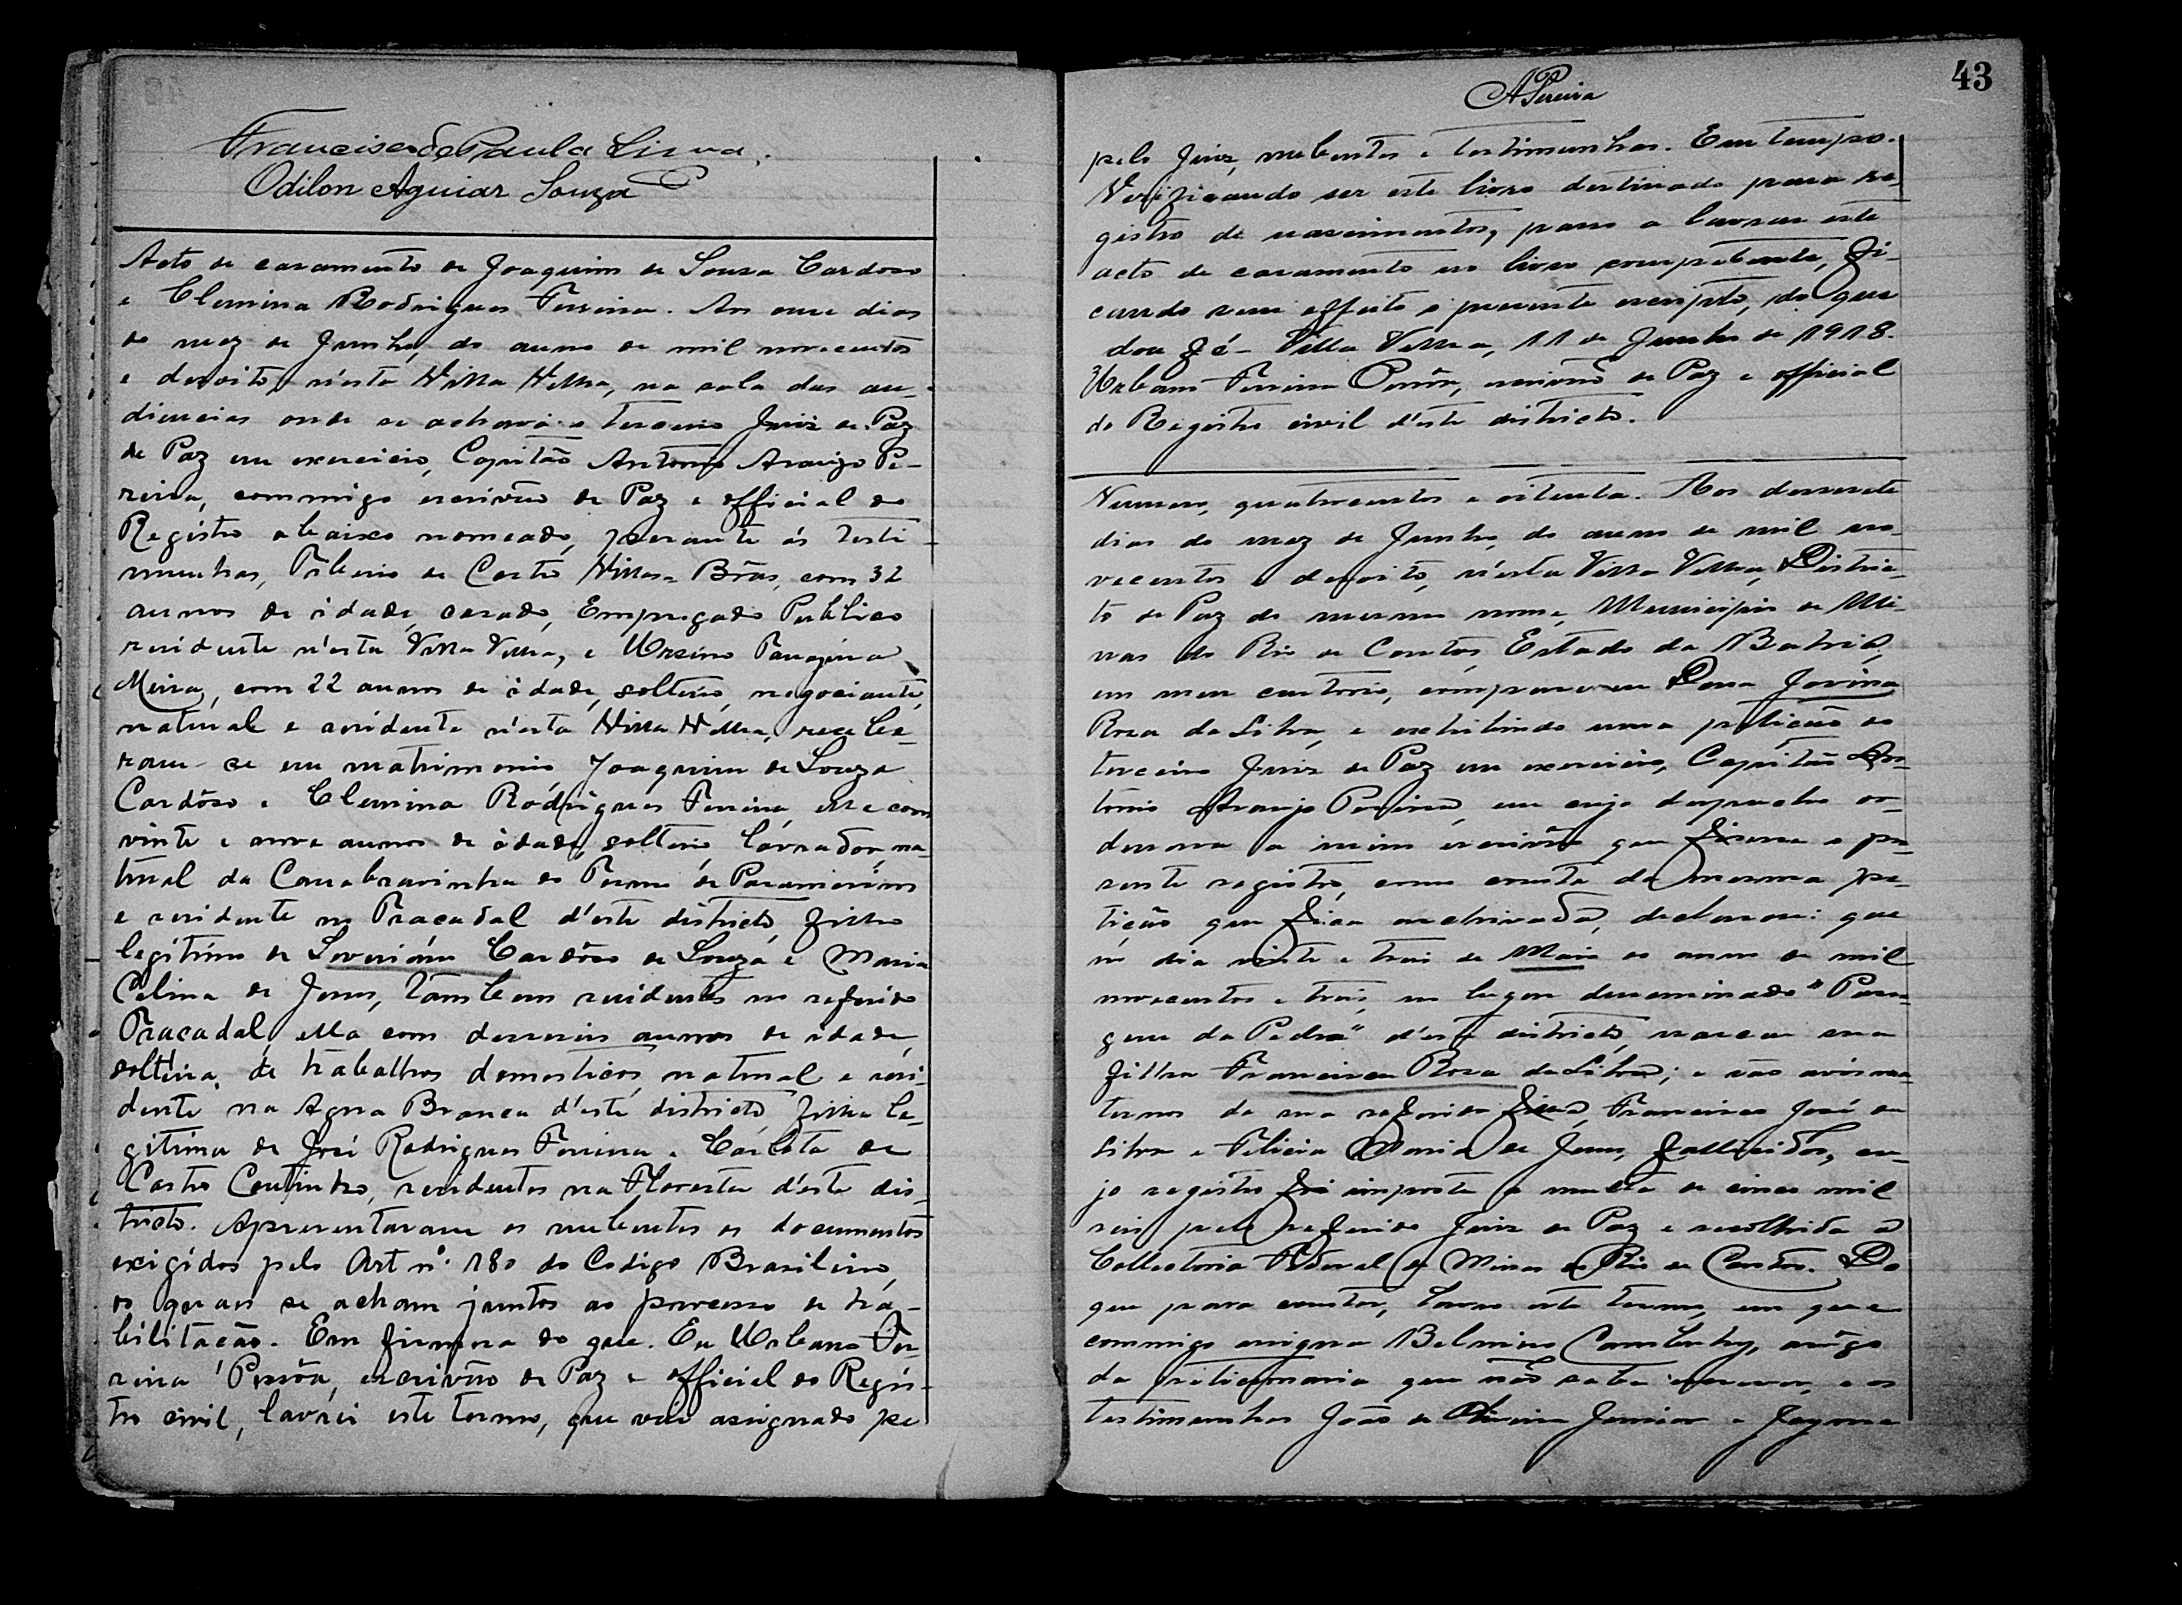 Francisco de Paula Lima.
Odilon Aguiar Souza
Acto de casamento de Joaquim de Souza Cardoso
e Clemina Rodrigues Ferreira. Aos onze dias
do mez de Junho, do anno de mil novecentos
e dezoito, n'esta Villa Velha, na sala das au-
diencias onde se achava o terceiro Juiz de Paz
de Paz em exercicio, Capitão Antonio Araujo Pe-
reira, commigo escrivão de Paz e official do
Registro abaixo nomeado, perante ás teste-
munhas, de Castro Villas-Bôas, com 32
annos de idade, casado, Empregado Publico
residente n'esta Villa Velha, e Ursino
Meira, com 22 annos de idade, solteiro, negociante,
natural e residente n'esta Villa Velha, recebe-
ram-se em matrimonio Joaquim de Souza
Cardôso e Clemina Rodrigues Ferreira, elle com
vinte e nove annos de idade, solteiro, lavrador, na-
tural da Cannabravinha do Termo de Paramirim
e residente no Tracadal d'este districto, filho
legitimo de Cardôso de Souza e Maria
Celina de Jesus, tambem residentes no referido
Tracadal, ella com deseseis annos de idade,
solteira, de trabalhos domesticos, natural e resi-
dente na Agua Branca d'este districto, filha le-
gitima de José Rodrigues Ferreira e Carlota de
Castro Coutinho, residentes na Floresta d'este dis-
tricto. Apresentaram os nubentes os documentos
exigidos pelo Art nº 180 do Codigo Brasileiro,
os quaes se acham juntos ao processo de ha-
bilitação. Em firmeza do que. Eu Urbano Fer-
reira Pessôa, escrivão de Paz e official do Regis-
tro civil, lavrei este termo, que vae assignado pe
APereira
43
pelo Juiz, nubentes e testimunhas. Em tempo.
Verificando ser este livro destinado para re-
gistro de nascimentos, passo a lavrar este
acto de casamento no livro competente, fi-
cando sem effeito o presente escripto, do que
dou fé - Villa Velha, 11 de Junho de 1918.
Urbano Ferreira Pessôa, escrivão de Paz e official
do Registro civil d'este districto.
Numero, quatrocentos e oitenta. Aos desesete
dias do mez de Junho, do anno de mil no-
vecentos e dezoito, n'esta Villa Velha, Distric-
to de Paz do mesmo nome, Municipio de Mi-
nas do Rio de Contas, Estado da Bahia,
em meu cartorio, compareceu Dona Jovina
Rosa da Silva, e exhibindo uma petição ao
terceiro Juiz de Paz em exercicio, Capitão An-
tonio Araujo Pereira, em cujo despacho or-
denava a mim escrivão que fizesse o pre-
sente registro, como consta da mesma pe-
tição que fica archivada, declarou: que
no dia vinte e trez de Maio do anno de mil
novecentos e trez, no logar denominado "Passa-
gem da Pedra" d'este districto, nasceu sua
filha Francisca Rosa da Silva; e são avós ma-
ternos da sua referida filha, Francisco José da
Silva e Felicia Maria de Jesus, fallecidos, cu-
jo registro foi imposta a multa de cinco mil
reis pelo referido Juiz de Paz e recolhida á
Collectoria Federal de Minas do Rio de Contas. Do
que para constar, lavro este termo, em que
commigo assigna Belmiro, arôgo
da peticionaria que não sabe escrever, e os
testimunhas João de Oliveira Junior e Jayme